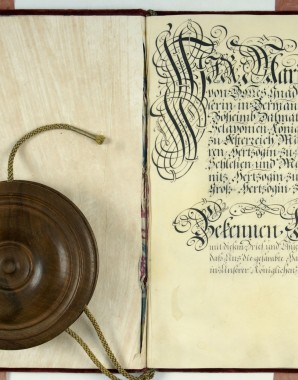 WIR Mar
von Gottes Gnad
in German
Boheimb Dalmat
Sclavonien König
zu Österreich
ren, Hertzogin zu
Schlesien und
Hertzogin zu
Groß-Hertzogin
Bekennen
mit disem Brief und
daß Uns die gesambte
in Unserer Königlichen